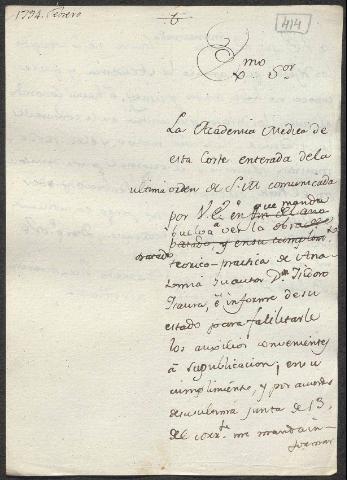 1794. Febrero
414
Exmo Sor
La Academia Medica de
esta Corte enterada de la
ultima orden de S.M. comunicada
por V.E.ª en que manda
vuelva a ver la obra
tratado
teorico-practica de Ana-
tomia su autor Dn Isidoro
Isaura, è informe de su
estado para facilitarle
los auxilios convenientes
à su publicacion; en su
cumplimiento, y por acuerdo
de su ultima junta de 13
del corrte. me manda in-
formar